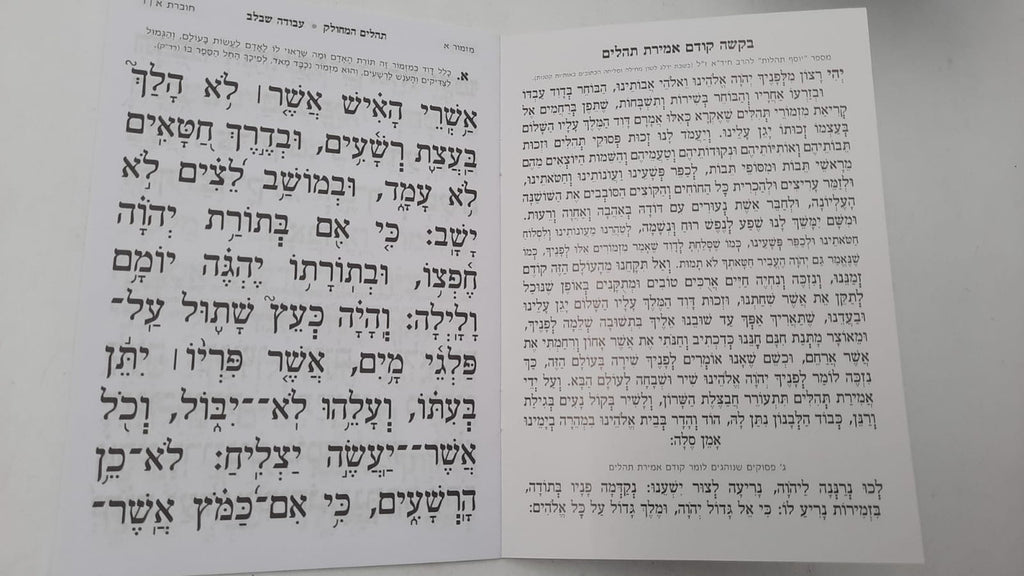 בקשה קודם אמירת תהלים
מספר "יוסף תהלות" להרב חיד"א ז"ל
יְהִי רָצוֹן מִלְּפָנֶיךָ יְהֹוָה אֱלֹהֵינוּ וֵאלֹהֵי אֲבוֹתֵינוּ, הַבּוֹחֵר בְּדָוִד עַבְדּוֹ
וּבְזַרְעוֹ אַחֲרָיו וְהַבּוֹחֵר בְּשִׁירוֹת וְתִשְׁבָּחוֹת, שֶׁתֵּפֶן בְּרַחֲמִים אֶל
קְרִיאַת מִזְמוֹרֵי תְהִלִּים שֶׁאֶקְרָא כְּאִלּוּ אֲמָרָם דָּוִד הַמֶּלֶךְ עָלָיו הַשָּׁלוֹם
בְּעַצְמוֹ זְכוּתוֹ יָגֵן עָלֵינוּ. וְיַעֲמָד לָנוּ זְכוּת פְּסוּקֵי תְהִלִּים וּזְכוּת
תֵּבוֹתֵיהֶם וְאוֹתִיּוֹתֵיהֶם וּנְקֻדּוֹתֵיהֶם וְטַעֲמֵיהֶם וְהַשֵּׁמוֹת הַיּוֹצְאִים מֵהֶם
מֵרָאשֵׁי תֵבוֹת וּמִסּוֹפֵי תֵבוֹת, לְכַפֵּר פְּשָׁעֵינוּ וַעֲוֹנוֹתֵינוּ וְחַטֹּאתֵינוּ,
וּלְזַמֵּר עָרִיצִים וּלְהַכְרִית כָּל הַחוֹחִים וְהַקּוֹצִים הַסּוֹבְבִים אֶת הַשּׁוֹשַׁנָּה
הָעֶלְיוֹנָה, וּלְחַבֵּר אֵשֶׁת נְעוּרִים עִם דּוֹדָהּ בְּאַהֲבָה וְאַחֲוָה וְרֵעוּת.
וּמִשָּׁם יִמָּשֵׁךְ לָנוּ שֶׁפַע לְנֶפֶשׁ רוּחַ וּנְשָׁמָה, לְטַהֲרֵנוּ מֵעֲוֹנוֹתֵינוּ וְלִסְלוֹחַ
חַטֹּאתֵינוּ וּלְכַפֵּר פְּשָׁעֵינוּ, כְּמוֹ שֶׁסָּלַחְתָּ לְדָוִד שֶׁאָמַר מִזְמוֹרִים אֵלּוּ לְפָנֶיךָ, כְּמוֹ
שֶׁנֶּאֱמַר גַּם יְהֹוָה הֶעֱבִיר חַטָּאתְךָ לֹא תָמוּת. וְאַל תִּקָּחֵנוּ מֵהָעוֹלָם הַזֶּה קוֹדֶם
זְמַנֵּנוּ, וְנִזְכֶּה וְנִחְיֶה חַיִּים אֲרֻכִּים טוֹבִים וּמְתֻקָּנִים בְּאוֹפֶן שֶׁנּוּכַל
לְתַקֵּן אֶת אֲשֶׁר שִׁחַתְנוּ, וּזְכוּת דָּוִד הַמֶּלֶךְ עָלָיו הַשָּׁלוֹם יָגֵן עָלֵינוּ
וּבַעֲדֵנוּ, שֶׁתַּאֲרִיךְ אַפְּךָ עַד שׁוּבֵנוּ אֵלֶיךָ בִּתְשׁוּבָה שְׁלֵמָה לְפָנֶיךָ,
וּמֵאוֹצַר מַתְּנַת חִנָּם חָנֵּנוּ כְּדִכְתִיב וְחַנֹּתִי אֶת אֲשֶׁר אָחוֹן וְרִחַמְתִּי אֶת
אֲשֶׁר אֲרַחֵם, וּכְשֵׁם שֶׁאָנוּ אוֹמְרִים לְפָנֶיךָ שִׁירָה בָּעוֹלָם הַזֶּה, כָּךְ
נִזְכֶּה לוֹמַר לְפָנֶיךָ יְהֹוָה אֱלֹהֵינוּ שִׁיר וּשְׁבָחָה לָעוֹלָם הַבָּא. וְעַל יְדֵי
אֲמִירַת תְּהִלִּים תִּתְעוֹרֵר חֲבַצֶּלֶת הַשָּׁרוֹן, וְלָשִׁיר בְּקוֹל נָעִים בְּגִילַת
וְרַנֵּן, כְּבוֹד הַלְּבָנוֹן נִתַּן לָהּ, הוֹד וְהָדָר בְּבֵית אֱלֹהֵינוּ בִּמְהֵרָה בְיָמֵינוּ
אָמֵן סֶלָה:
ג' פסוקים שנוהגים לומר קודם אמירת תהלים
לְכוּ נְרַנְּנָה לַיהֹוָה, נָרִיעָה לְצוּר יִשְׁעֵנוּ: נְקַדְּמָה פָנָיו בְּתוֹדָה,
בִּזְמִירוֹת נָרִיעַ לוֹ: כִּי אֵל גָּדוֹל יְהֹוָה, וּמֶלֶךְ גָּדוֹל עַל כָּל אֱלֹהִים:
מזמור א תהלים המחולק * עבודה שבלב חוברת א | 1
א. כלל דוד במזמור זה תורת האדם ומה שראוי לו לאדם לעשות בעולם, והגמול
לצדיקים והעונש לרשעים, והוא מזמור נכבד מאד, לפיכך החל הספר בו (רד"ק).
אַשְׁרֵי הָאִישׁ אֲשֶׁר | לֹא הָלַךְ
בַּעֲצַת רְשָׁעִים, וּבְדֶרֶךְ חַטָּאִים
לֹא עָמָד, וּבְמוֹשַׁב לֵצִים לֹא
יָשָׁב: כִּי אִם בְּתוֹרַת יְהֹוָה
חֶפְצוֹ, וּבְתוֹרָתוֹ יֶהְגֶּה יוֹמָם
וָלָיְלָה: וְהָיָה כְּעֵץ שָׁתוּל עַל־
פַּלְגֵי מָיִם, אֲשֶׁר פִּרְיוֹ | יִתֵּן
בְּעִתּוֹ, וְעָלֵהוּ לֹא־־יִבּוֹל, וְכֹל
אֲשֶׁר־־יַעֲשֶׂה יַצְלִיחַ: לֹא־כֵן
הָרְשָׁעִים, כִּי אִם־כַּמֹּץ אֲשֶׁר־